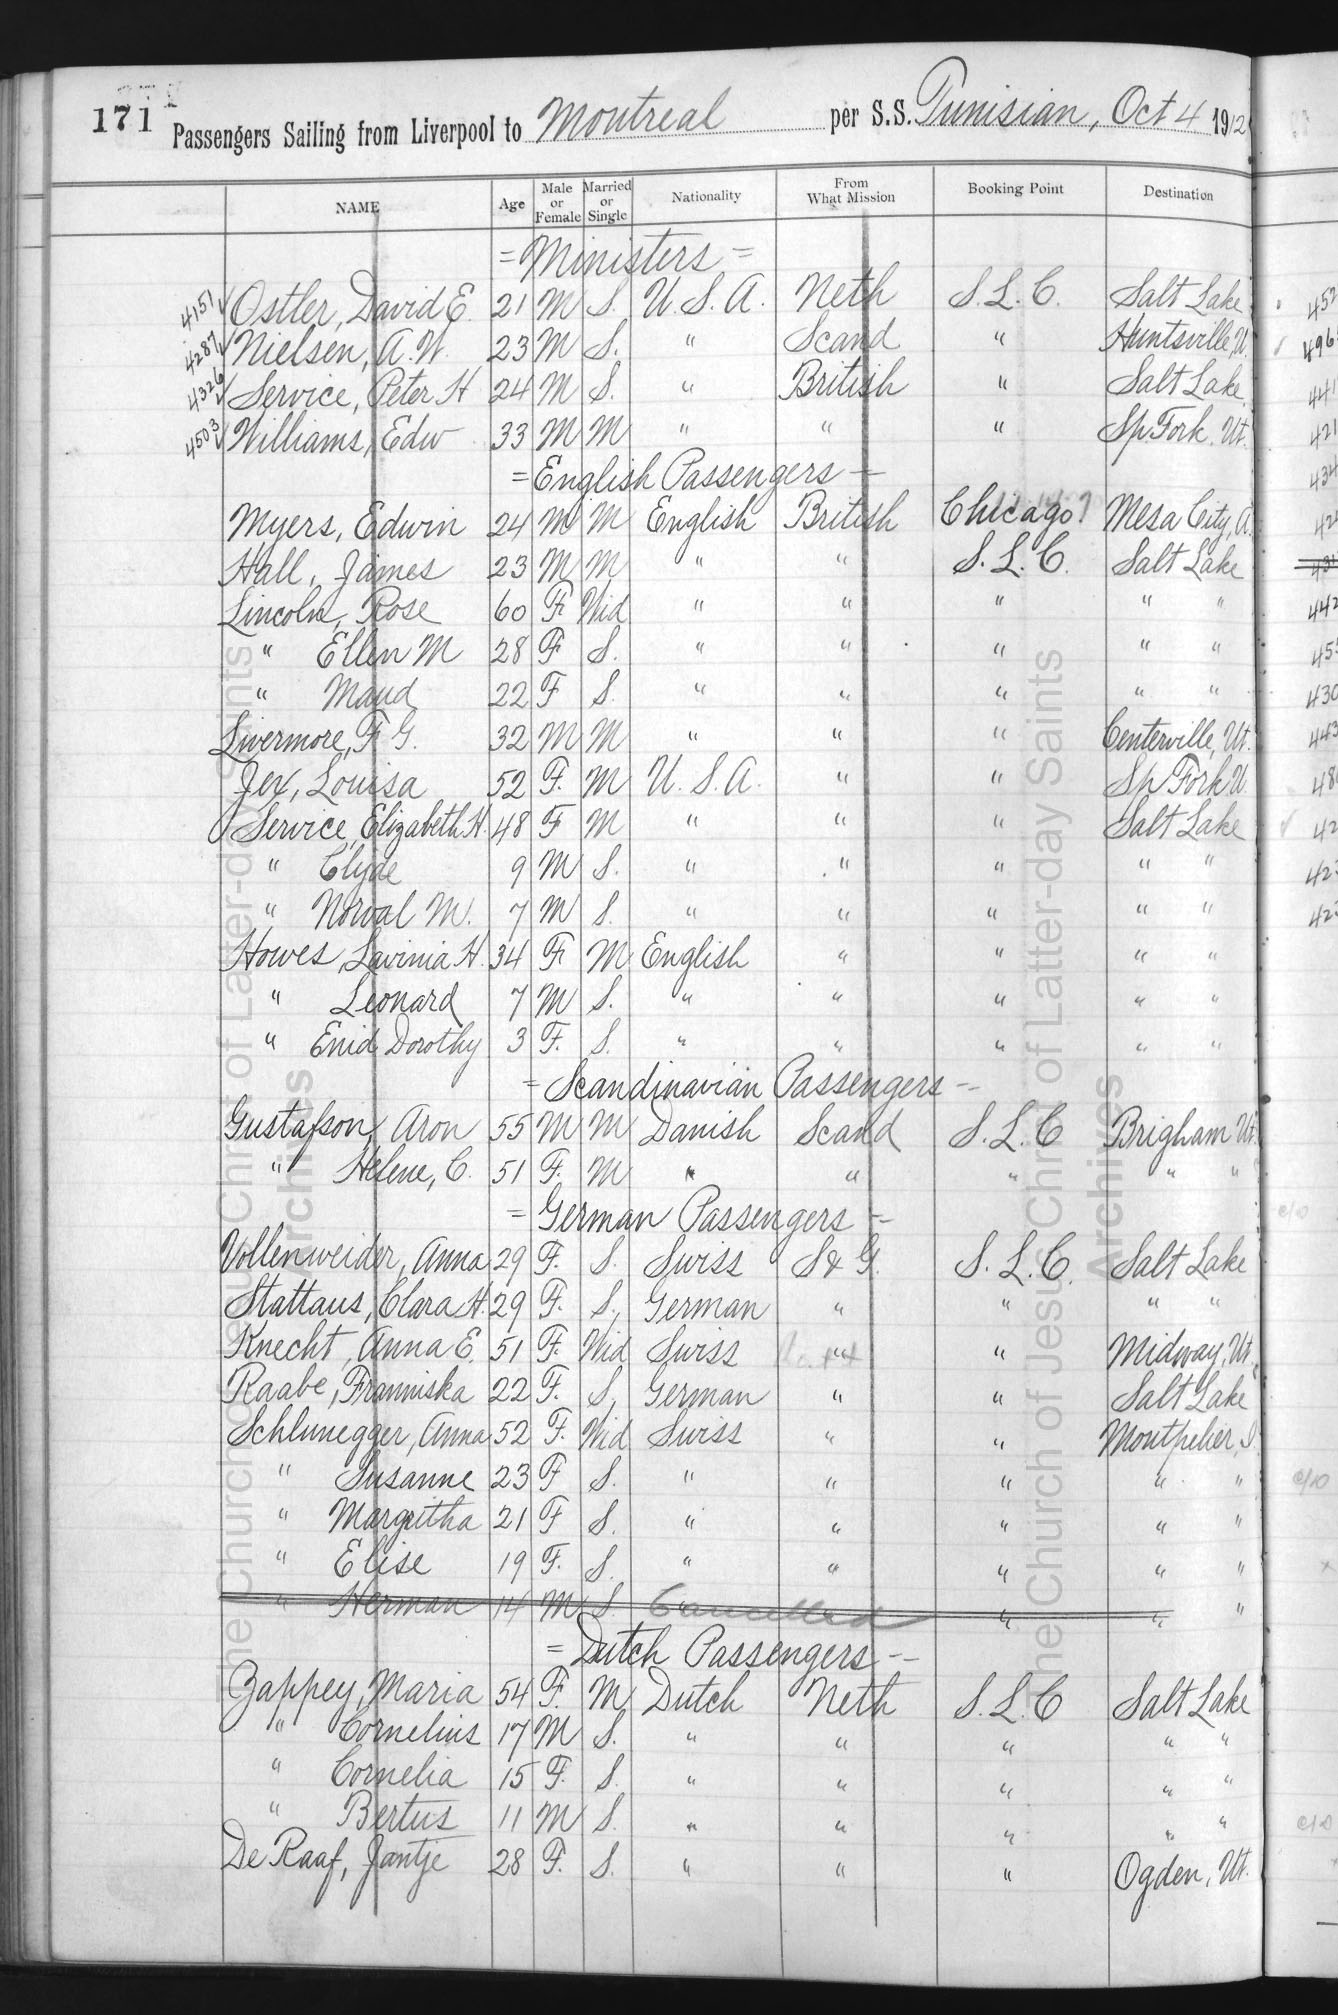 171
Passengers Sailing from Liverpool to Montreal per S.S. Tunisian, Oct 4 1912
NAME Age Male or Female Married or Single Nationality From What Mission Booking Point Destination
= Ministers =
4151 Ostler, David E. 21 M S. U. S. A. Neth S. L. C. Salt Lake
4287 Nielsen, A. W. 23 M S. " Scand " Huntsville, U.
4326 Service, Peter H 24 M S. " British " Salt Lake
4503 Williams, Edw 33 M M " " " Sp Fork. Ut.
= English Passengers =
Myers, Edwin 24 M M English British Chicago Mesa City, A.
Hall, James 23 M M " " S. L. C. Salt Lake
Lincoln, Rose 60 F Wid " " " " "
" Ellen M 28 F S. " " " " "
" Maud 22 F S. " " " " "
Livermore, F G. 32 M M " " " Centerville, Ut.
Jex, Louisa 52 F. M U. S. A. " " Sp Fork U.
Service, Elizabeth H. 48 F M " " " Salt Lake
" Clyde 9 M S. " " " " "
" Norval M. 7 M S. " " " " "
Howes, Lavinia H. 34 F M English " " " "
" Leonard 7 M S. " " " " "
" Enid Dorothy 3 F. S. " " " " "
= Scandinavian Passengers =
Gustafson, Aron 55 M M Danish Scand S. L. C Brigham Ut.
" Helene, C. 51 F. M " " " " "
= German Passengers =
Vollenweider, Anna 29 F. S. Swiss S & G. S. L. C. Salt Lake
Stattaus, Clara H. 29 F. S. German " " " "
Knecht, Anna E. 51 F. Wid Swiss " " Midway, Ut.
Raabe, Franniska 22 F. S. German " " Salt Lake
Schlunegger, Anna 52 F. Wid Swiss " " Montpelier, I.
" Susanne 23 F S. " " " " "
" Margritha 21 F S. " " " " "
" Elise 19 F. S. " " " " "
" Herman 14 M S. Cancelled " " "
= Dutch Passengers =
Zappey, Maria 54 F. M Dutch Neth S. L. C Salt Lake
" Cornelius 17 M S. " " " " "
" Cornelia 15 F. S. " " " " "
" Bertus 11 M S. " " " " "
De Raaf, Jantje 28 F. S. " " " Ogden, Ut.
The Church of Jesus Christ of Latter-day Saints
Archives
The Church of Jesus Christ of Latter-day Saints
Archives